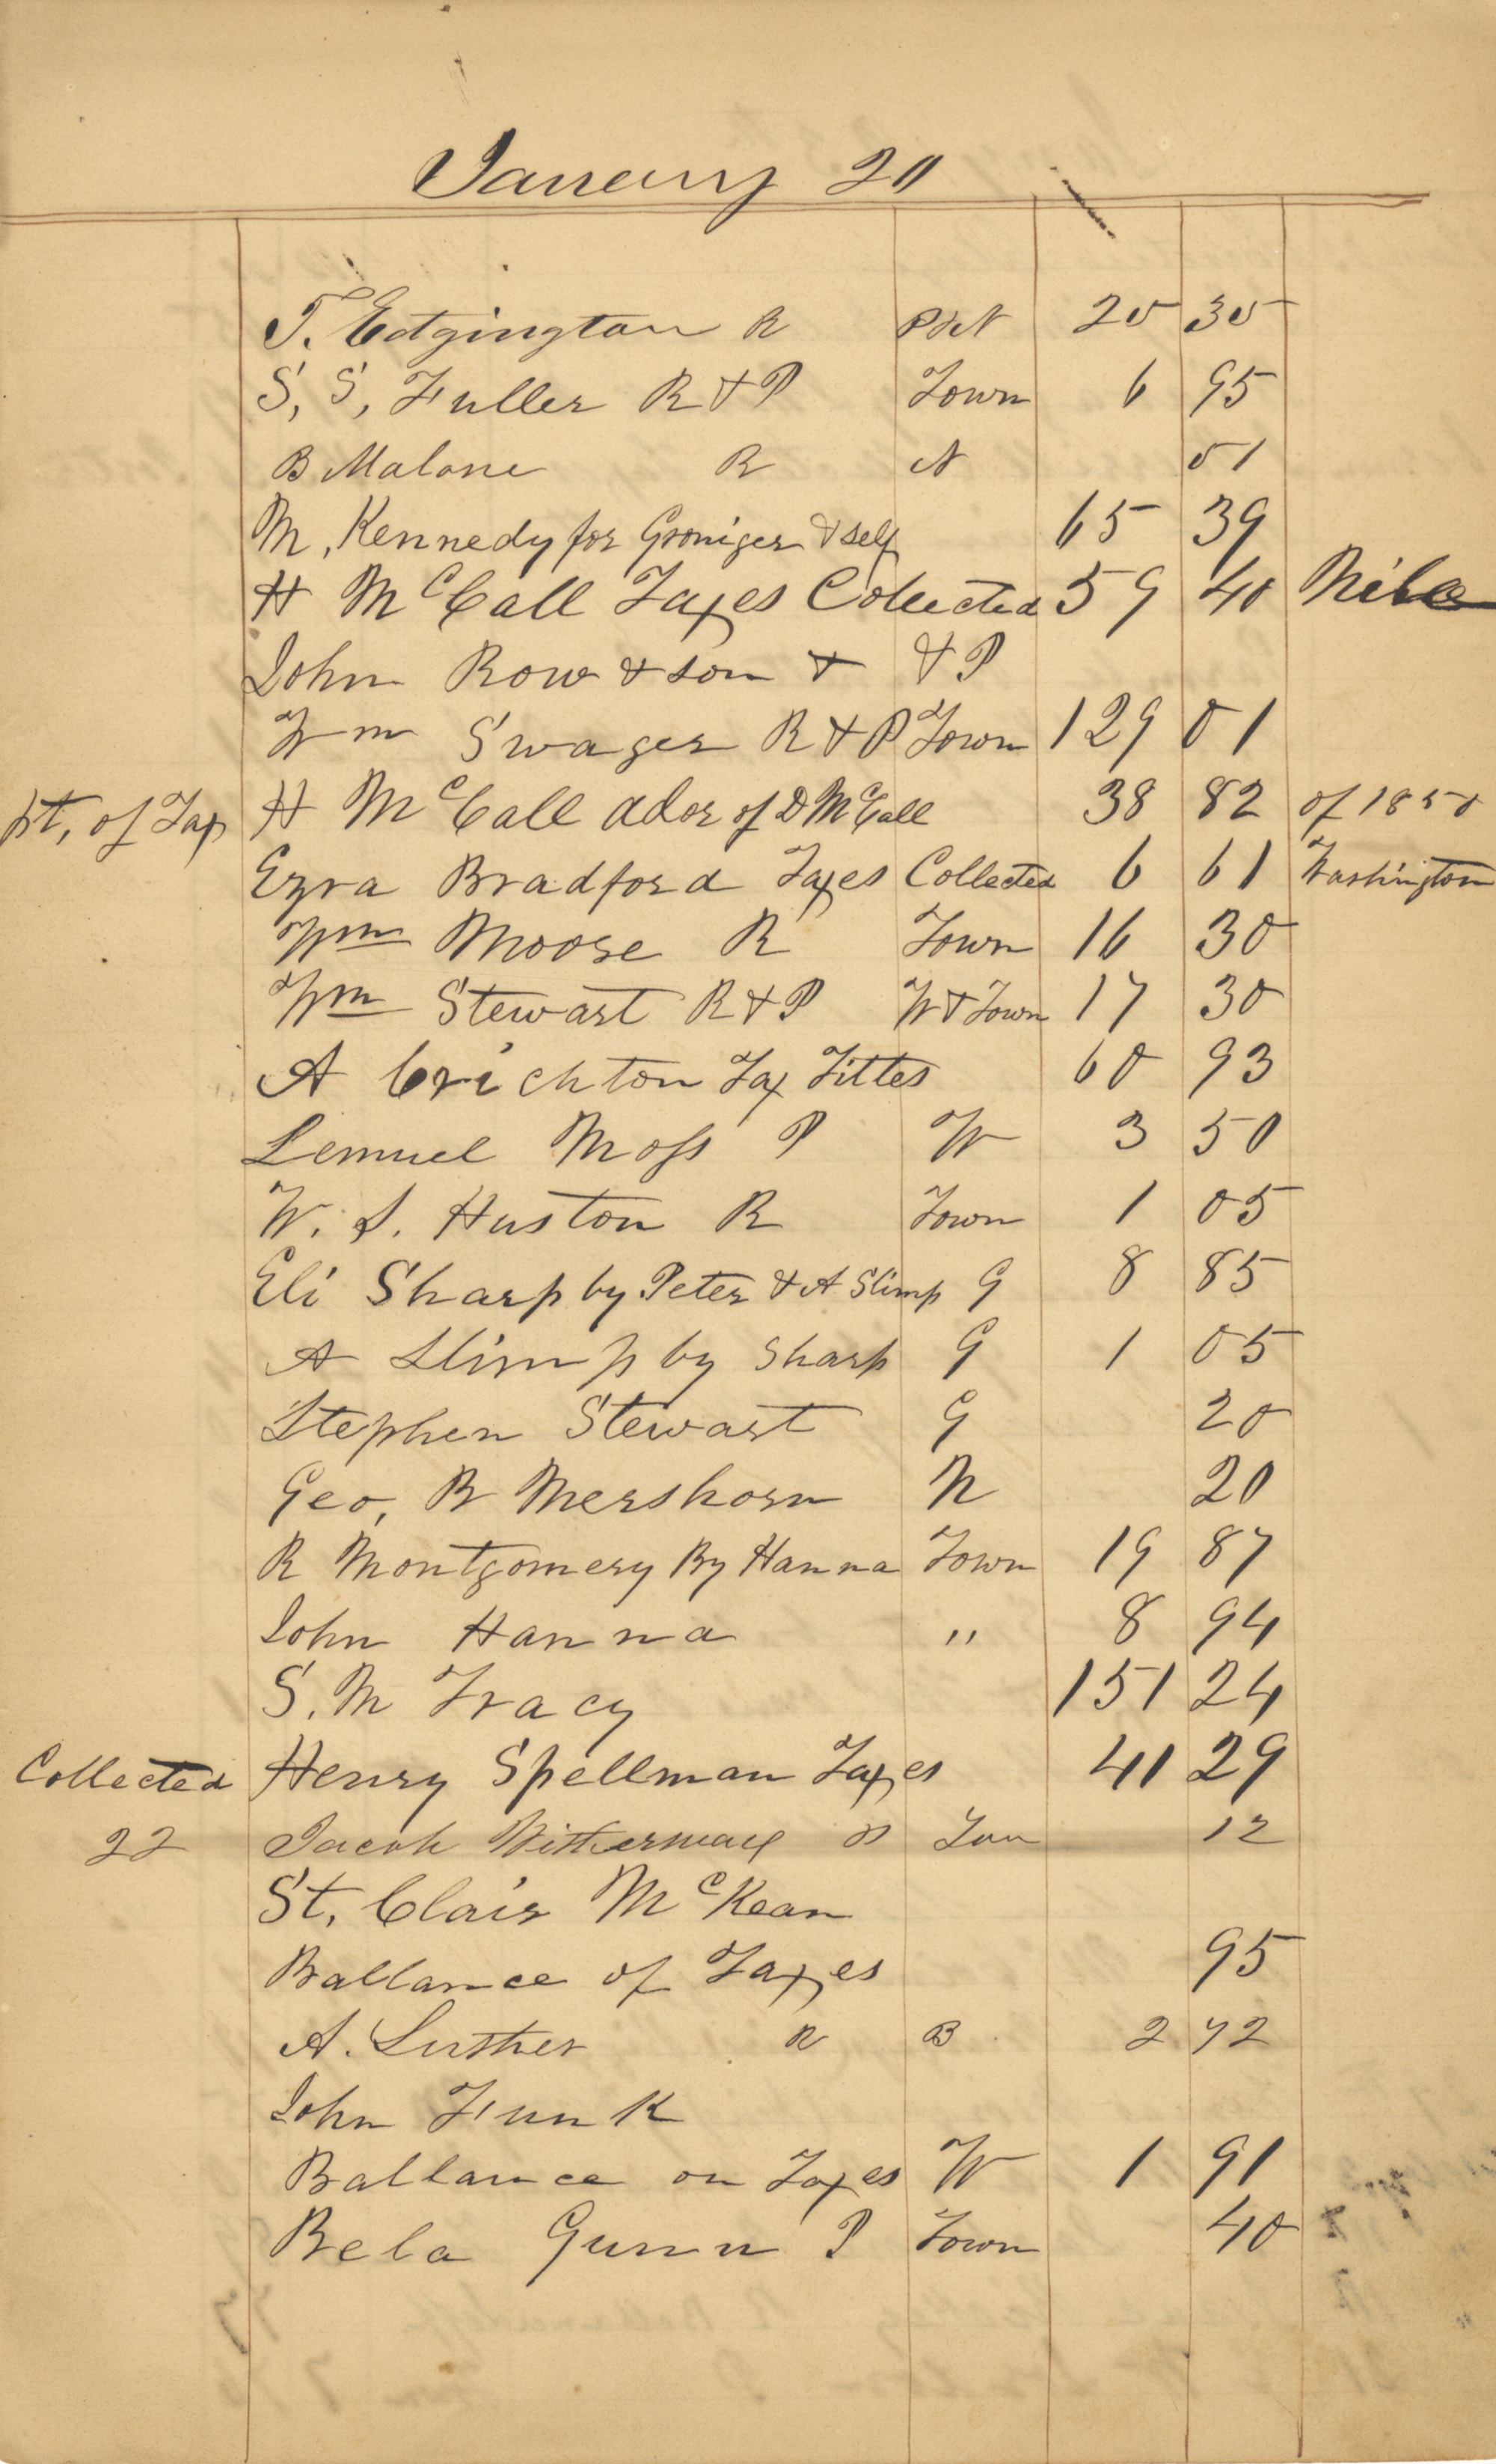 January 20
T. Edgington R P & N 20 30
S, S, Fuller R & P Town 6 95
B Malone R N 01
M, Kennedy for Groniger & self 65 39
H McCall Taxes Collected 59 40 Niles
John Row & son & & P
Wm Swager R & P Town 129 01
pt, of Tax H McCall ador of D McCall 38 82 of 1850
Ezra Bradford Taxes Collected 6 61 Washington
Wm Moore R Town 16 30
Wm Stewart R & P W & Town 17 30
A Crichton Tax Tittes 60 93
Lemuel Moss P W 3 50
W. S. Huston R Town 1 05
Eli Sharp by Peter & A Slimp G 8 85
A Slimp by Sharp G 1 05
Stephen Stewart G 20
Geo, B Mershorn N 20
R Montgomery By Hanna Town 19 87
John Hanna " 8 94
S. M Tracy 151 24
Collected Henry Spellman Taxes 41 29
22 Jacob 12
St, Clair McKean
Ballance of Taxes 95
A. Luther R B 2 72
John Funk
Ballance on Taxes W 1 91
Bela Gunn P Town 40